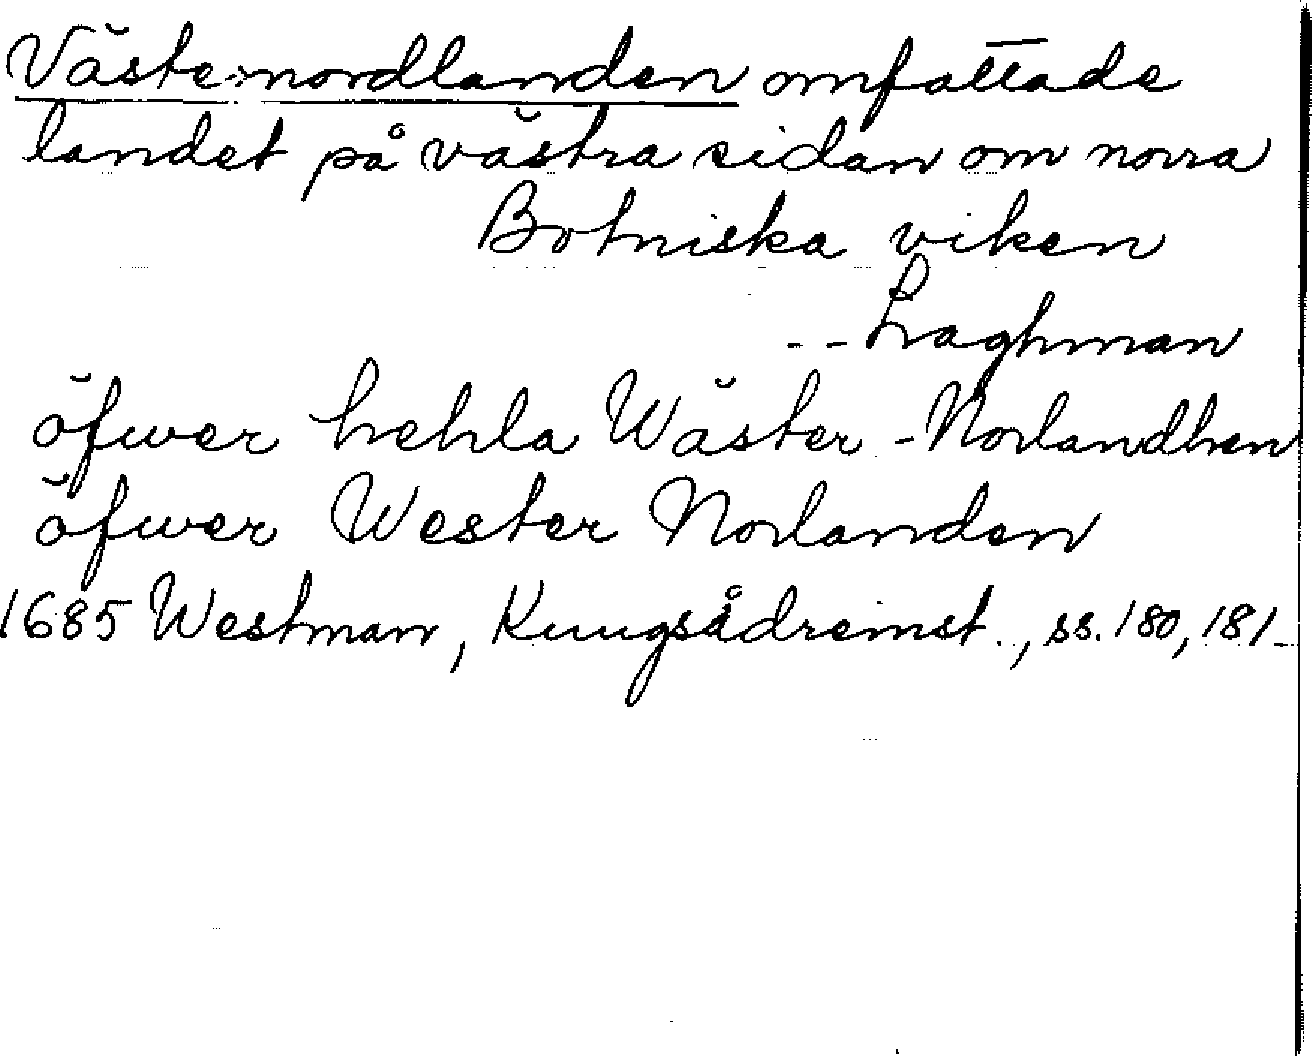 Västernordlanden omfattade
landet på västra sidan om norra
Botniska viken
-- Laghman
öfwer hehla Wäster-Norlandhen
öfwer Wester Norlanden
1685 Westman, Kungsådreinst., ss. 180, 181